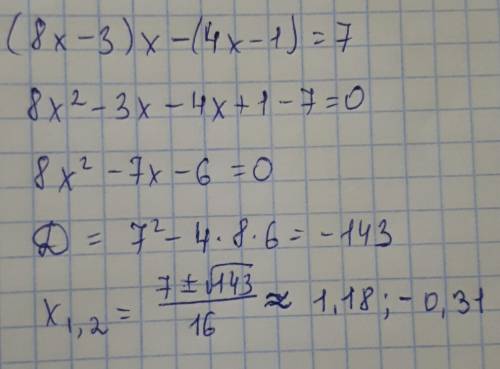 (8x-3)x-(4x-1)=7
8x²-3x-4x+1-7=0
8x²-7x-6=0
D = 7²-4·8·6 = -143
x₁,₂ = (7±√143)/16 ≈ 1,18; -0,31